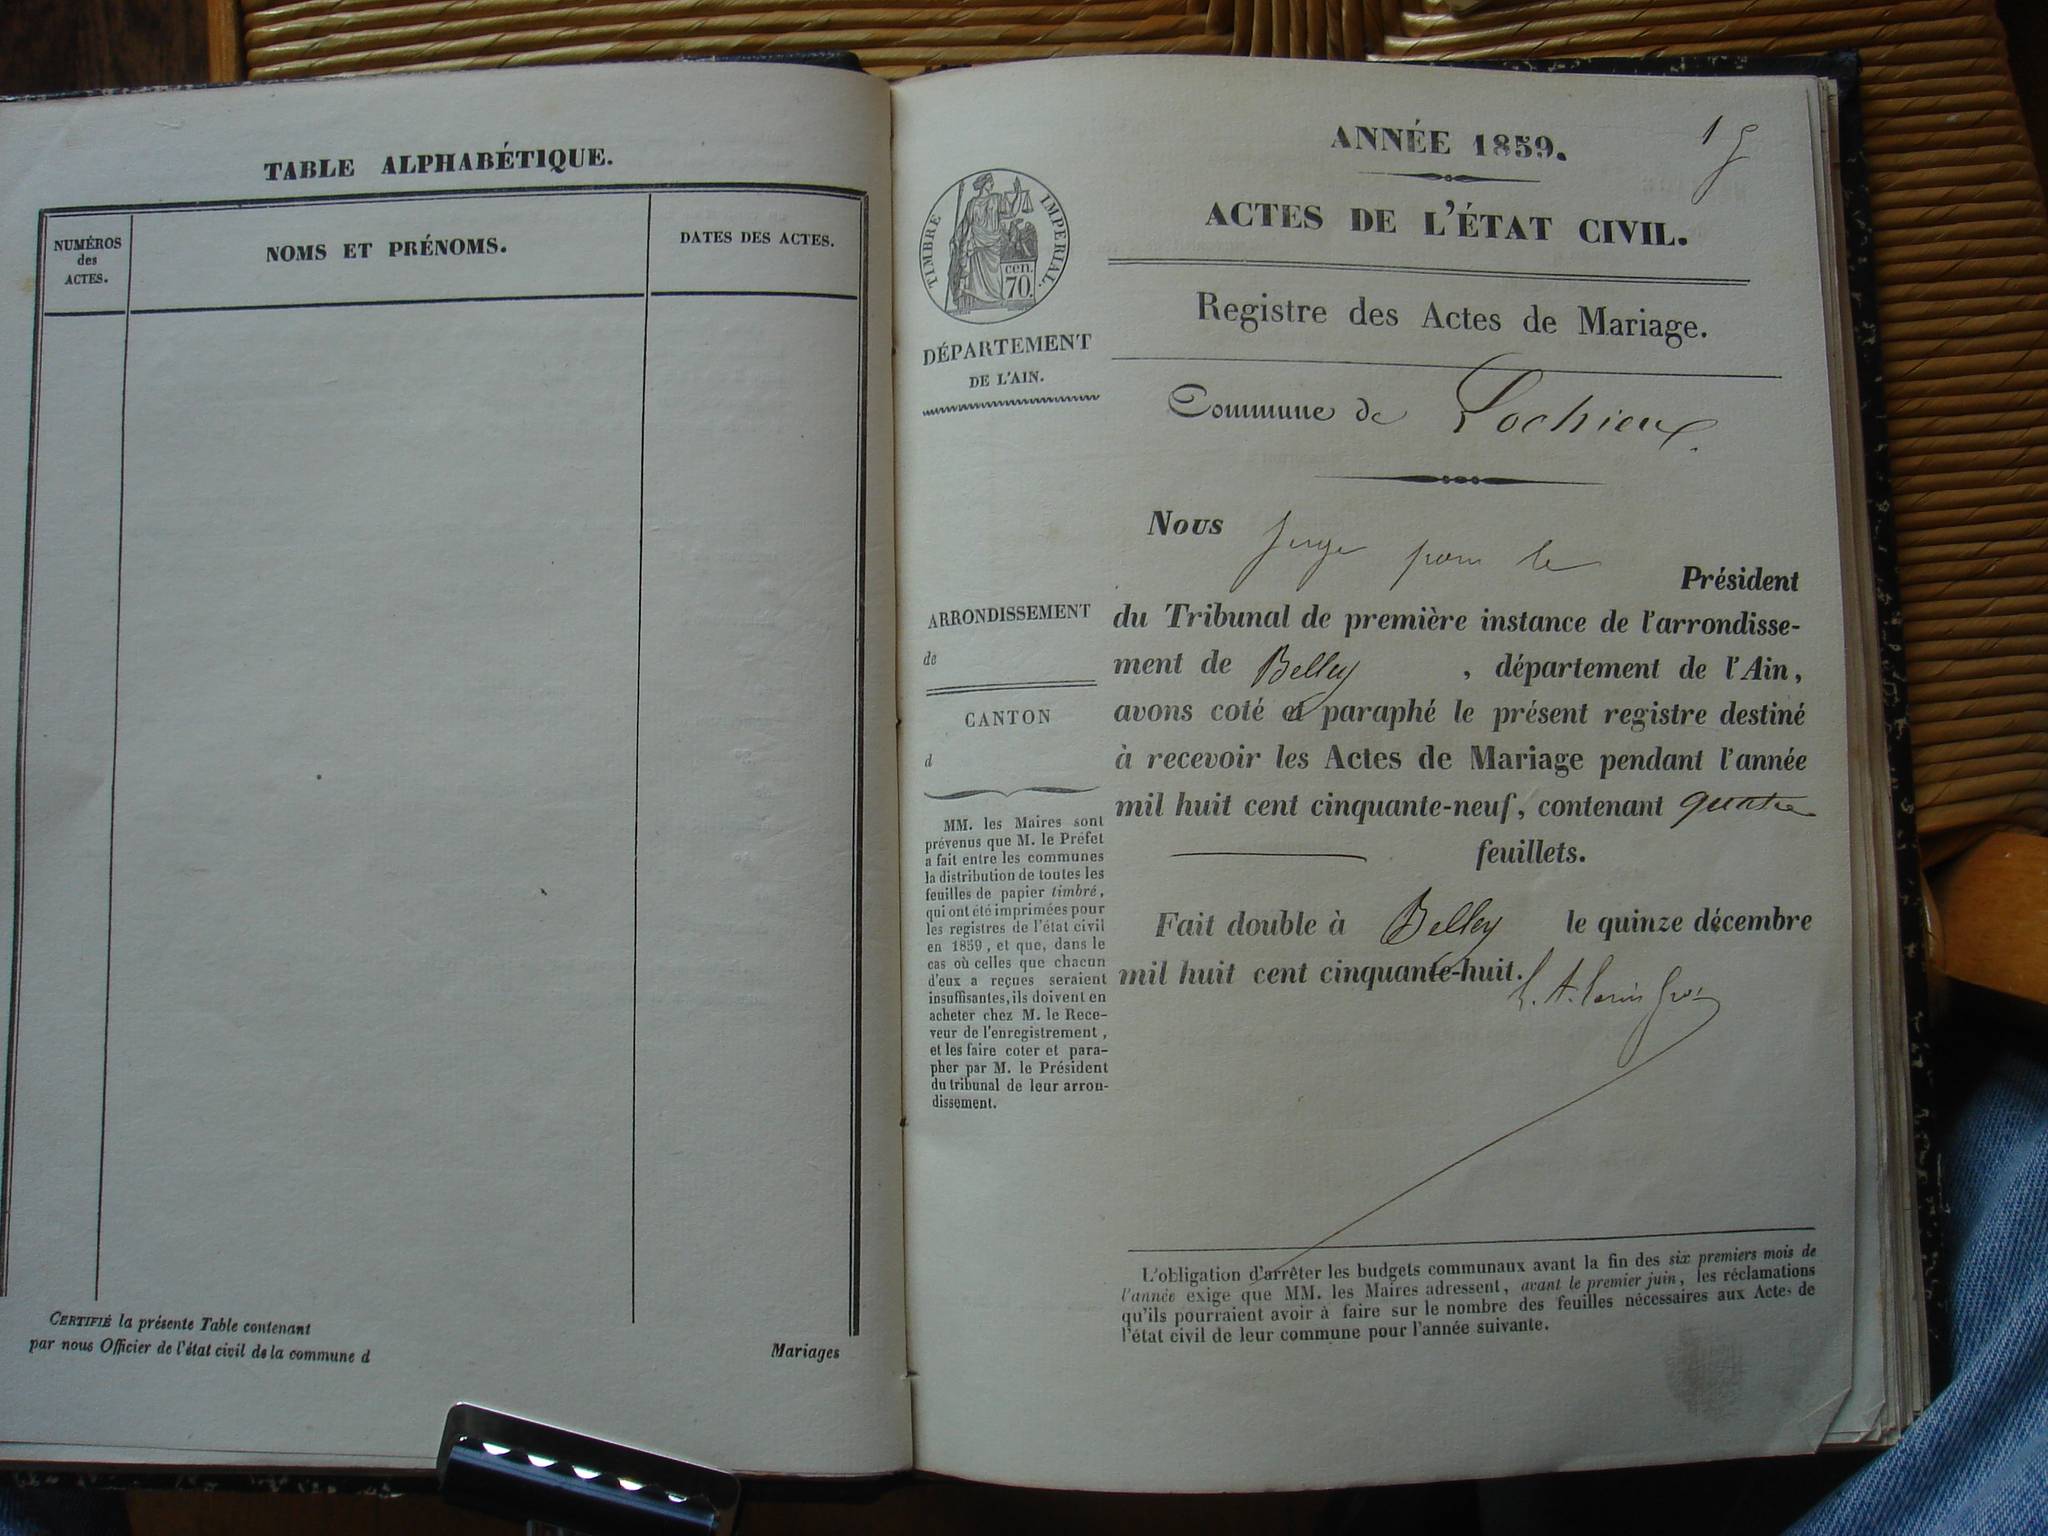 TABLE ALPHABÉTIQUE.
NUMÉROS
des
ACTES.
NOMS ET PRÉNOMS.
DATES DES ACTES.
CERTIFIÉ la présente Table contenant
Mariages
par nous Officier de l'état civil de la commune d
ANNÉE 1859.
1
ACTES DE L'ÉTAT CIVIL.
TIMBRE IMPERIAL.
cen.
70.
Registre des Actes de Mariage.
DÉPARTEMENT
DE L'AIN.
Commune de Lochieu.
Nous Juge pour le
Président
du Tribunal de première instance de l'arrondisse-
ment de Belley , département de l'Ain,
avons coté et paraphé le présent registre destiné
à recevoir les Actes de Mariage pendant l'année
mil huit cent cinquante-neuf, contenant quatre
feuillets.
Fait double à Belley le quinze décembre
mil huit cent cinquante-huit.
ARRONDISSEMENT
de
CANTON
d
MM. les Maires sont
prévenus que M. le Préfet
a fait entre les communes
la distribution de toutes les
feuilles de papier timbré,
qui ont été imprimées pour
les registres de l'état civil
en 1859, et que, dans le
cas où celles que chacun
d'eux a reçues seraient
insuffisantes, ils doivent en
acheter chez M. le Rece-
veur de l'enregistrement,
et les faire coter et para-
pher par M. le Président
du tribunal de leur arron-
dissement.
L'obligation d'arrêter les budgets communaux avant la fin des six premiers mois de
l'année exige que MM. les Maires adressent, avant le premier juin, les réclamations
qu'ils pourraient avoir à faire sur le nombre des feuilles nécessaires aux Actes de
l'état civil de leur commune pour l'année suivante.